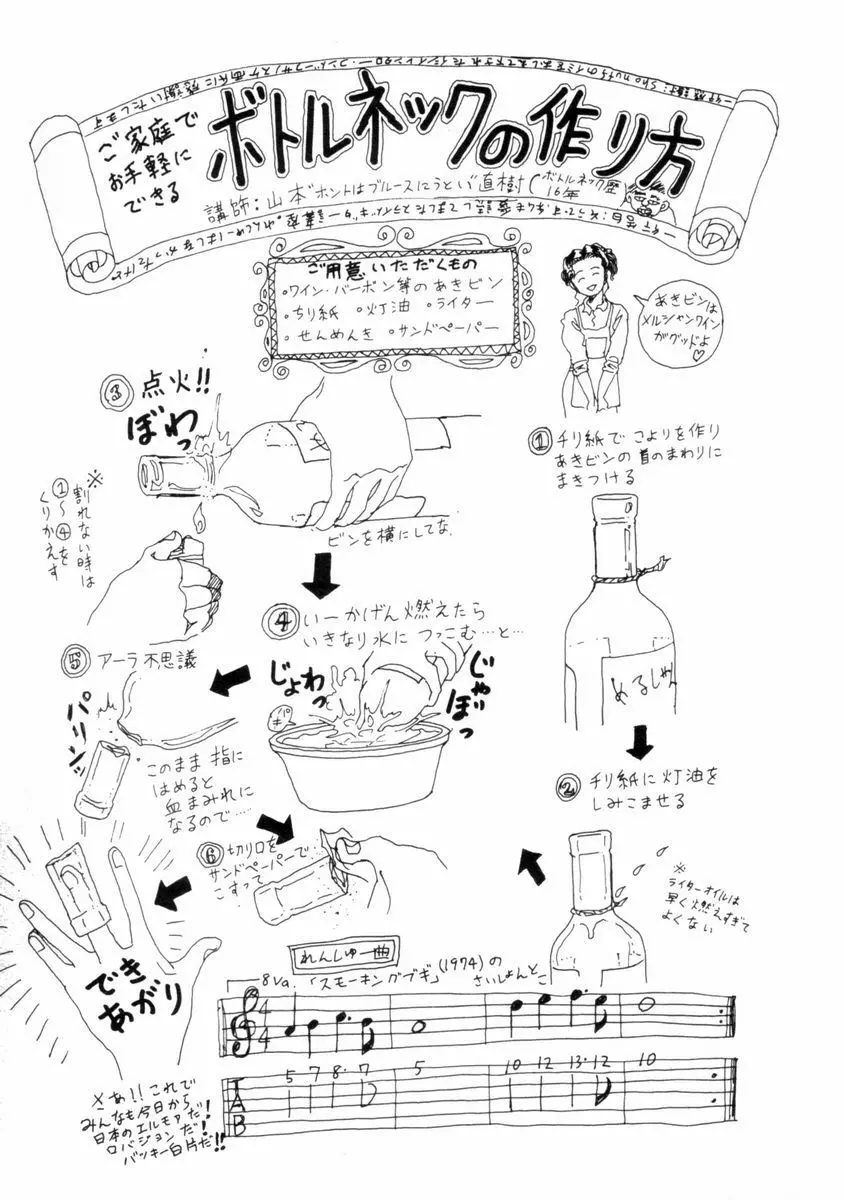 ご家庭で
お手軽に
できる
ボトルネックの作り方
講師:山本"ホントはブルースにうとい"直樹(ボトルネック歴
16年
ご用意いただくもの
・ワイン・バーボン等のあきビン
・ちり紙 ・灯油 ・ライター
・せんめんき ・サンドペーパー
あきビンは
メルシャンワイン
がグッドよ
♡
① チリ紙で こよりを作り
あきビンの首のまわりに
まきつける
めるしゃん
② チリ紙に灯油を
しみこませる
※
ライターオイルは
早く燃えすぎて
よくない
③ 点火!!
ぼわっ
ビンを横にしてな
※
割れない時は
①〜④を
くりかえす
④ いーかげん燃えたら
いきなり水に つっこむ…と…
じょわっ
じゃぼっ
⑤ アーラ不思議
パリンッ
このまま 指に
はめると
血まみれに
なるので……
⑥ 切り口を
サンドペーパーで
こすって
でき
あがり
れんしゅー曲
8va.「スモーキングブギ」(1974)の
さいしょんとこ
4
4
5 7 8・7 5 10 12 13・12 10
T
A
B
※さあ!! これで
みんなも今日から
日本のエルモアだ!
ロバジョンだ!
バッキー白片だ!!